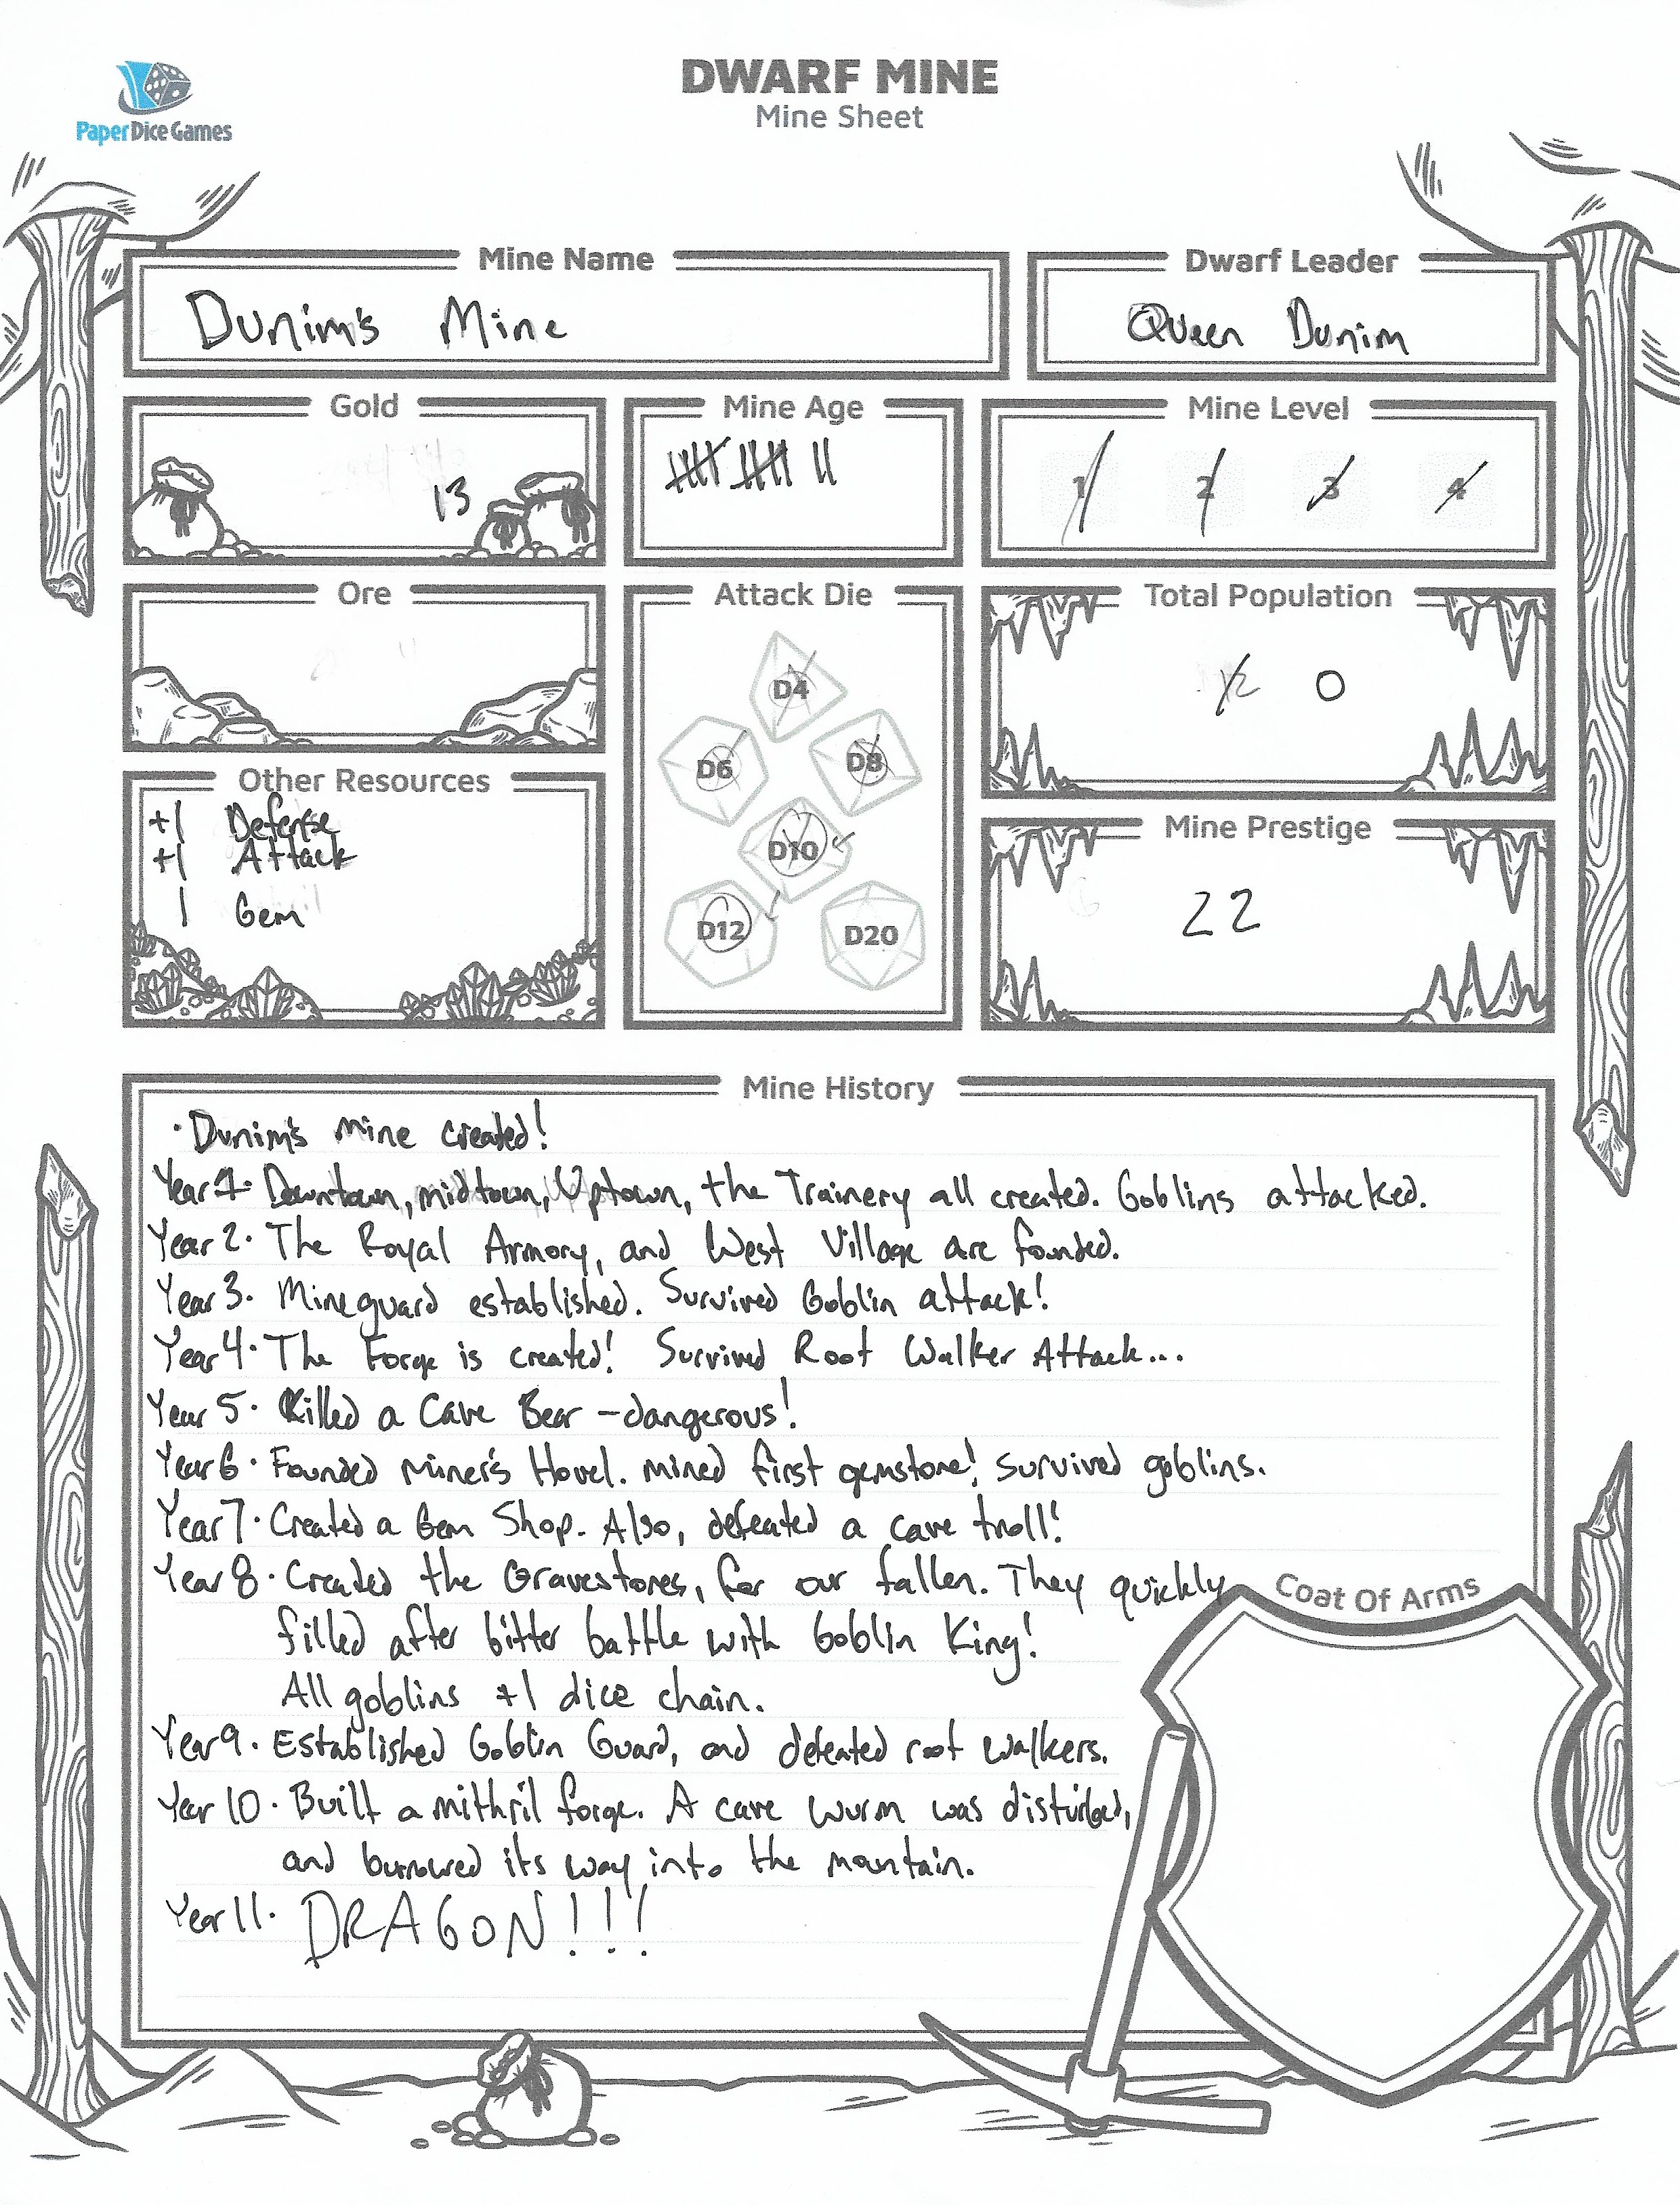 PaperDice Games
DWARF MINE
Mine Sheet
Mine Name
Dunim's Mine
Dwarf Leader
Queen Dunim
Gold
13
Mine Age
Mine Level
1 2 3 4
Ore
Attack Die
D4
D6
D8
D10
D12
D20
Total Population
12 0
Other Resources
+1 Defense
+1 Attack
1 Gem
Mine Prestige
22
Mine History
· Dunim's Mine created!
Year 1· Downtown, midtown, Uptown, the Trainery all created. Goblins attacked.
Year 2· The Royal Armory, and West Village are founded.
Year 3· Mineguard established. Survived Goblin attack!
Year 4· The Forge is created! Survived Root Walker Attack...
Year 5· Killed a Cave Bear - dangerous!
Year 6· Founded Miner's Hovel. Mined first gemstone! Survived goblins.
Year 7· Created a Gem Shop. Also, defeated a cave troll!
Year 8· Created the Gravestones, for our fallen. They quickly
filled after bitter battle with Goblin King!
All goblins +1 dice chain.
Year 9· Established Goblin Guard, and defeated root walkers.
Year 10· Built a mithril forge. A cave wurm was disturbed,
and burrowed its way into the mountain.
Year 11· DRAGON!!!
Coat Of Arms